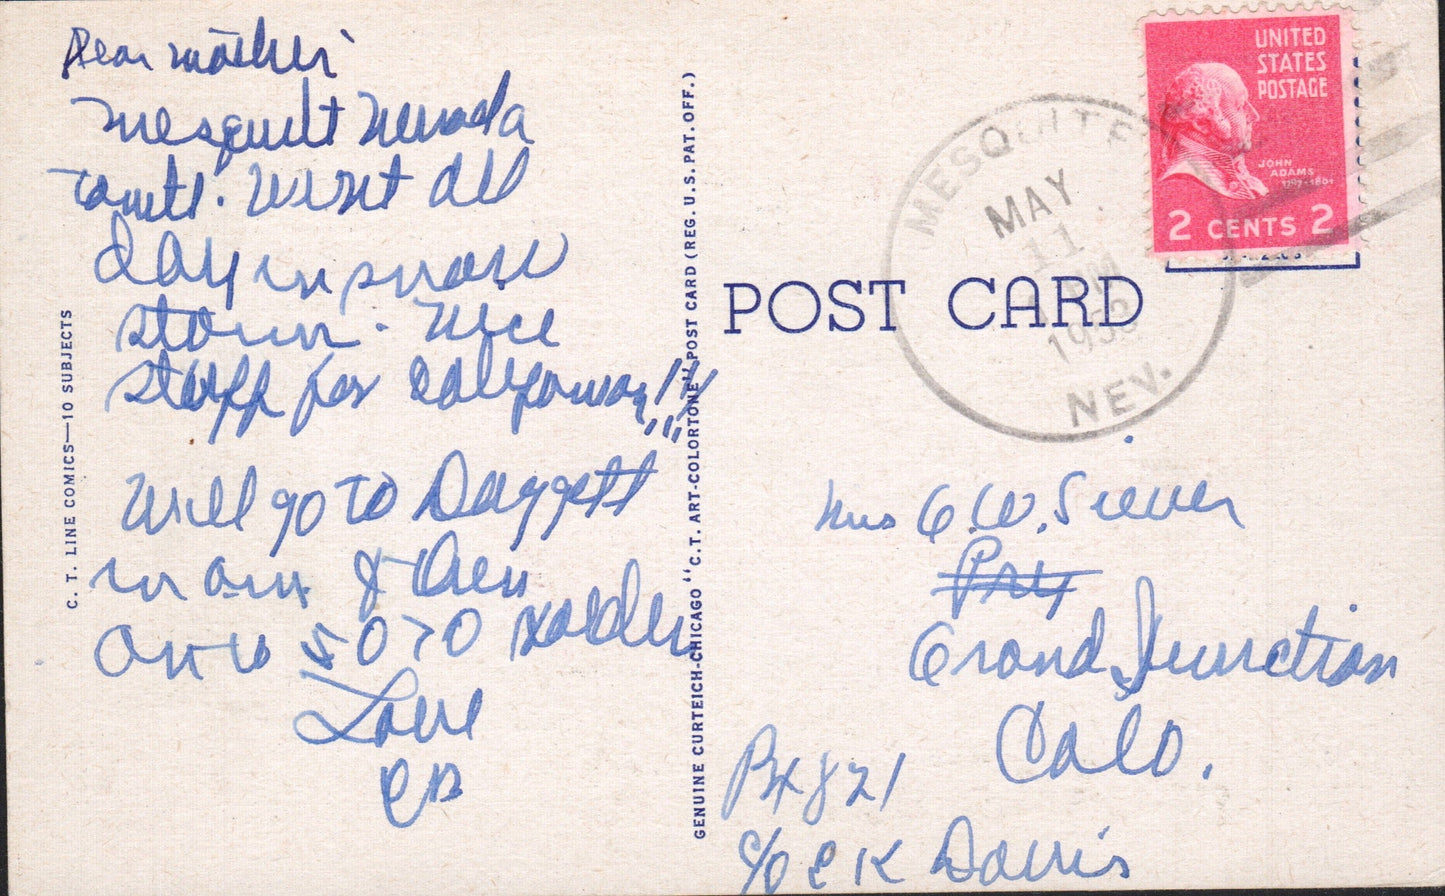 Dear mother
mesquit Nevada
tonite. Went all
day in snow
storm. Nice
stuff for California!!
Will go to Daggett
in am & then
on to
Love
C. T. LINE COMICS—10 SUBJECTS
GENUINE CURTEICH-CHICAGO "C.T. ART-COLORTONE" POST CARD (REG. U.S. PAT. OFF.)
UNITED
STATES
POSTAGE
JOHN
ADAMS
1797-1801
2 CENTS 2
MESQUITE
MAY
11
PM
1953
NEV.
POST CARD
Mrs G.W. Siever
Grand Junction
Colo.
Bx 821
c/o C K Davis